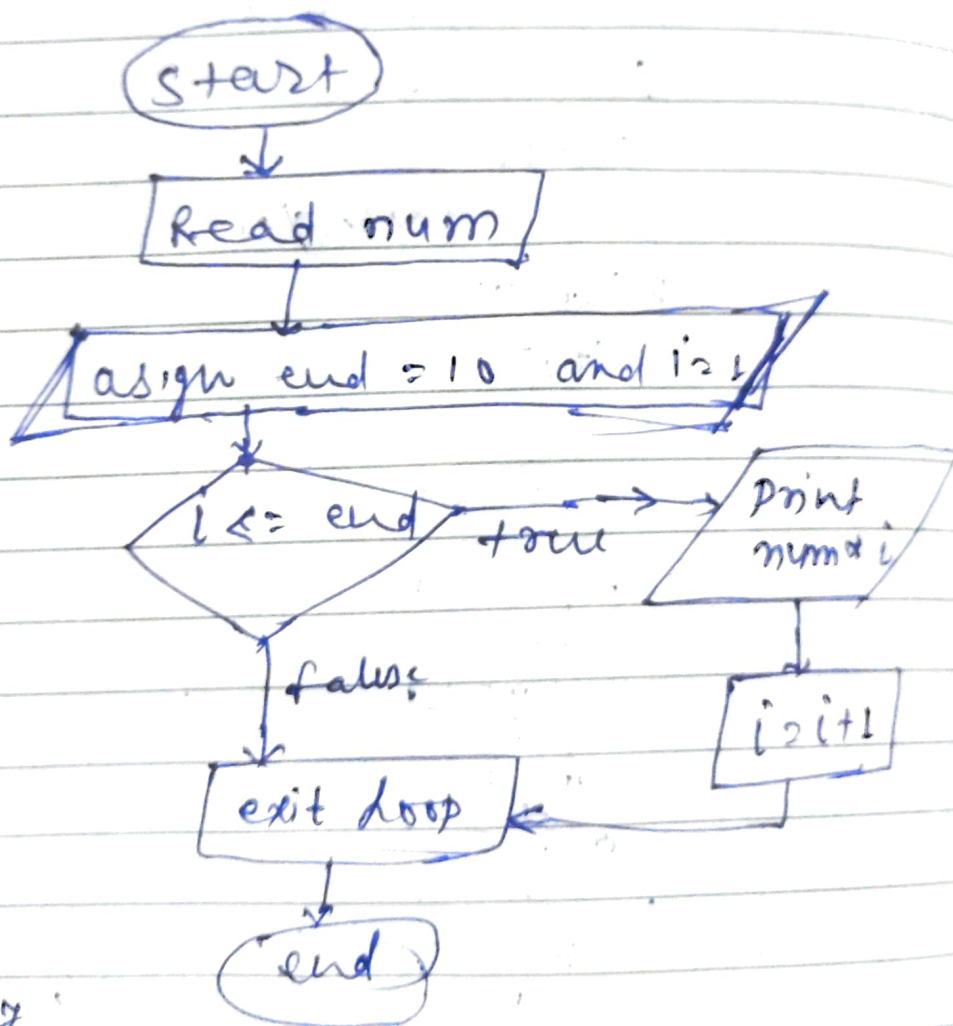 start
Read num
asign end = 10 and i = 1
i <= end
true
Print
num * i
false
i = i+1
exit loop
end